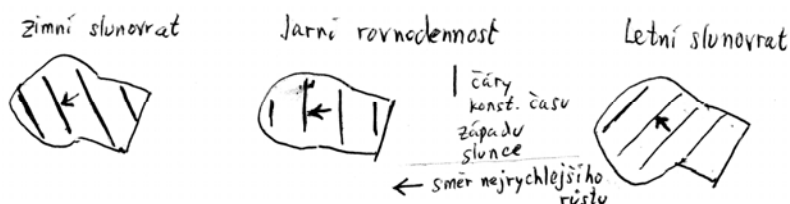 zimní slunovrat
Jarní rovnodennost
Letní slunovrat
čáry
konst. času
západu
slunce
směr nejrychlejšího
růstu